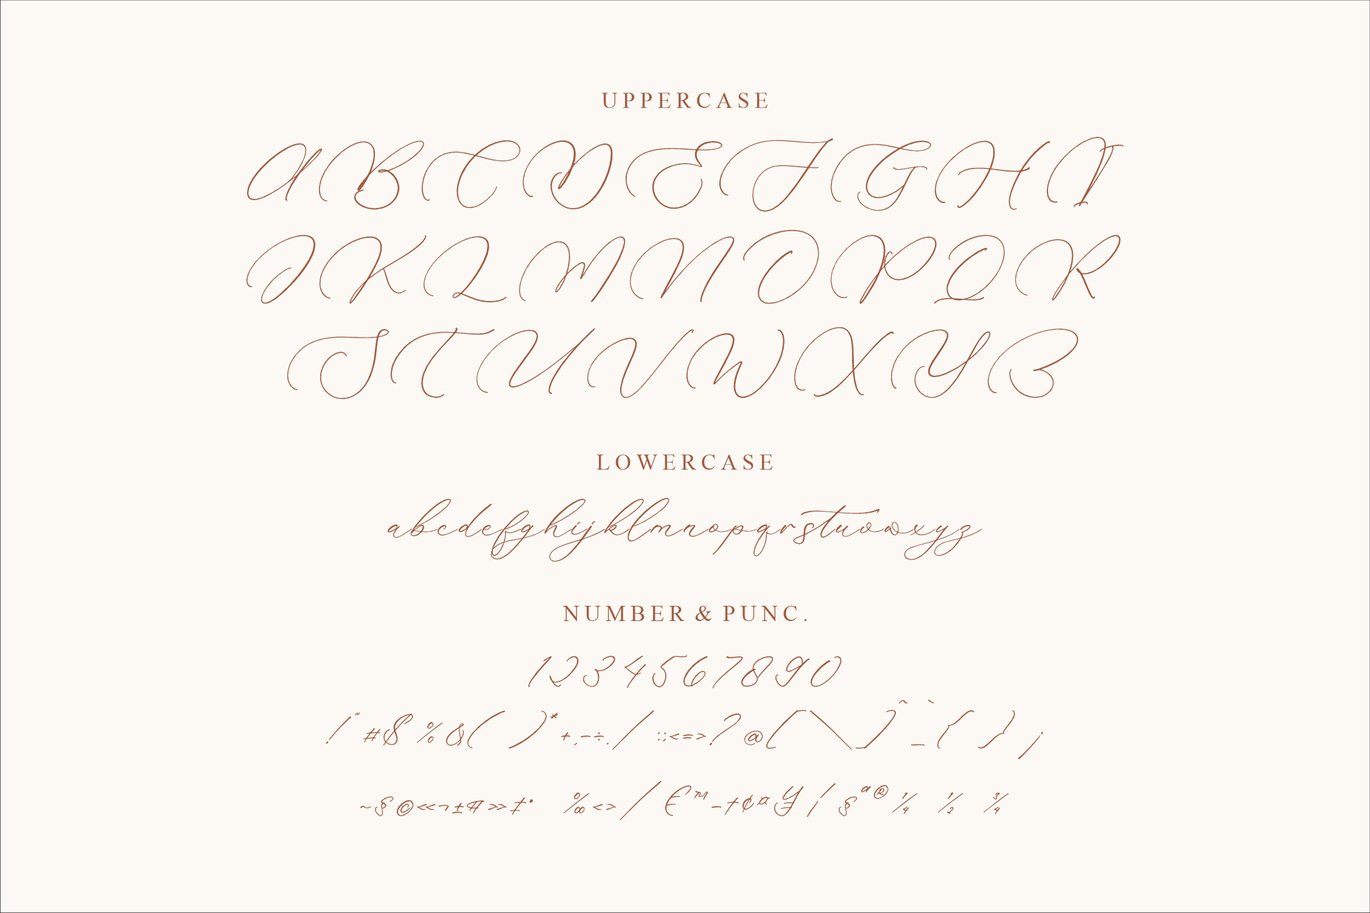 UPPERCASE
ABCDEFGHI
JKLMNOPQR
STUVWXYZ
LOWERCASE
abcdefghijklmnopqrstuvwxyz
NUMBER & PUNC.
1234567890
!"#$%&()*+,-÷./:;<=>?@[\]^_`{}¡
~§©«¬±¶»‡°‰<>/€™–†¢¤¥¦§ª®¼ ½ ¾